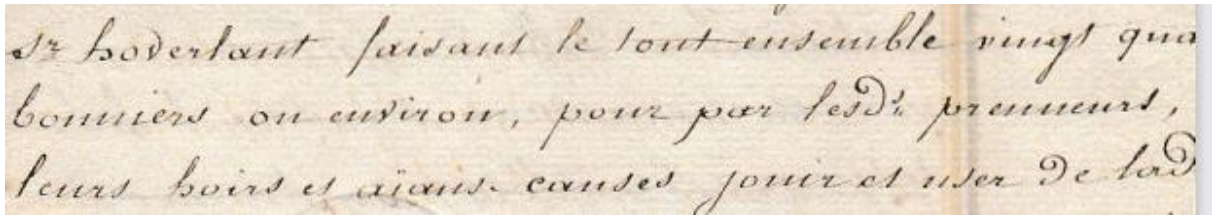 Sr hoverlant faisant le tout ensemble vingt qua
bonniers ou environ, pour par lesd.s prenneurs,
leurs hoirs et aians causes jouir et user de lad